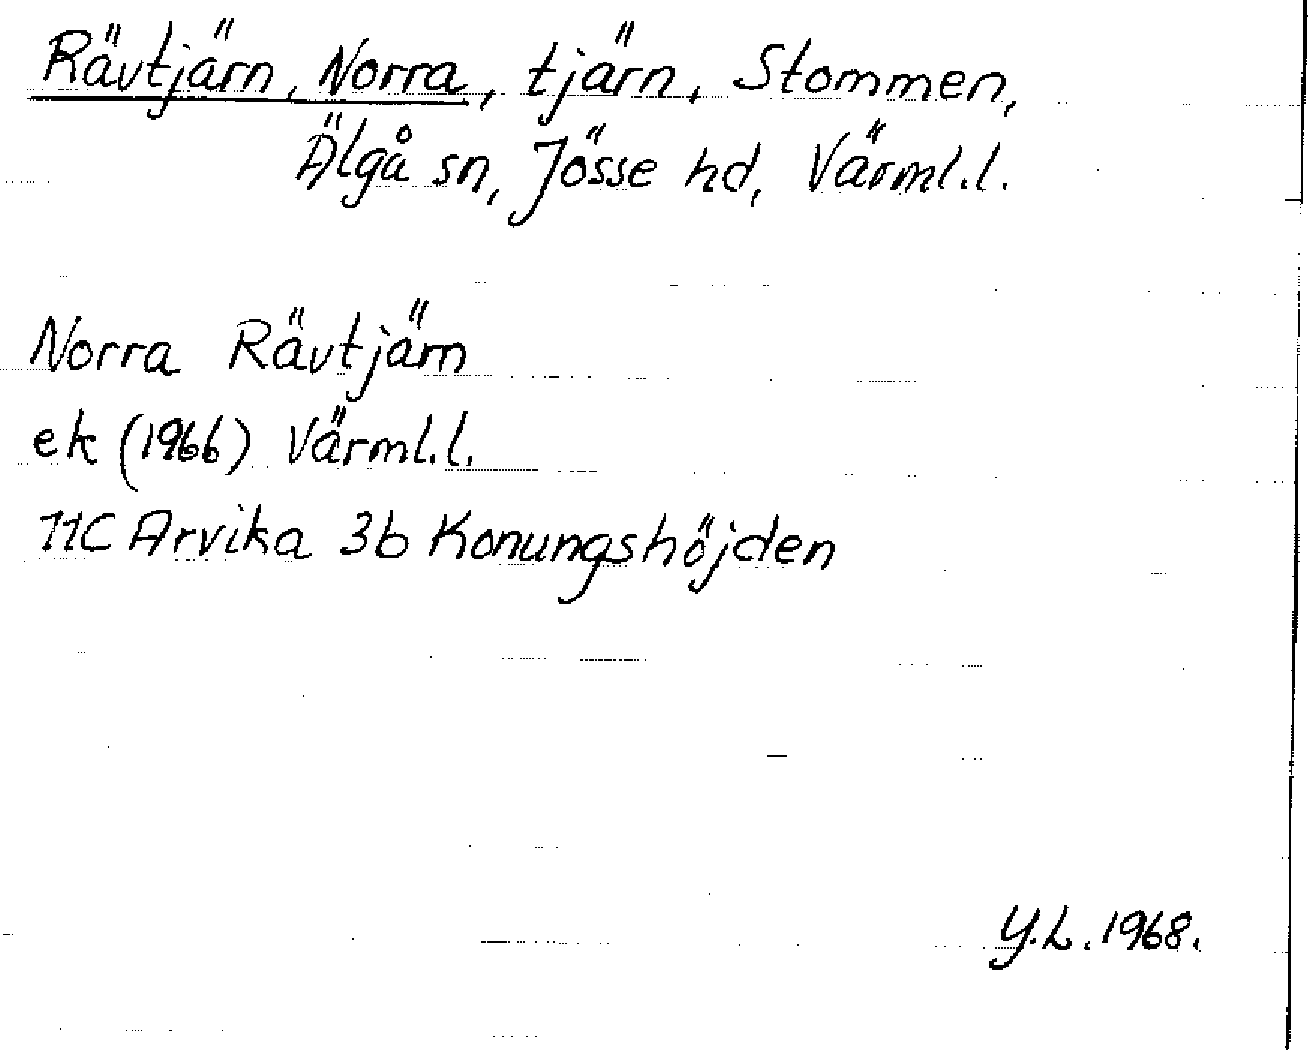 Rävtjärn, Norra, tjärn, Stommen,
Älgå sn, Jösse hd, Värml.l.
Norra Rävtjärn
ek (1966) Värml.l.
11C Arvika 3b Konungshöjden
Y.L. 1968.